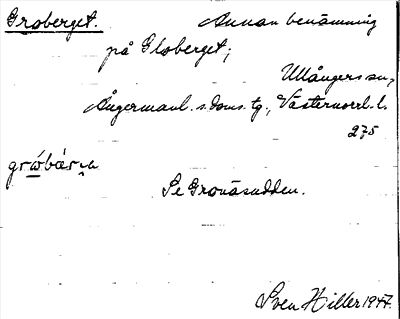 Groberget. Annan benämning
på Globerget;
Ullångers sn,
Ångermanl. s. doms. tg., Västernorrl. l.
275
Se Gronäsudden.
Sven Hiller 1947.